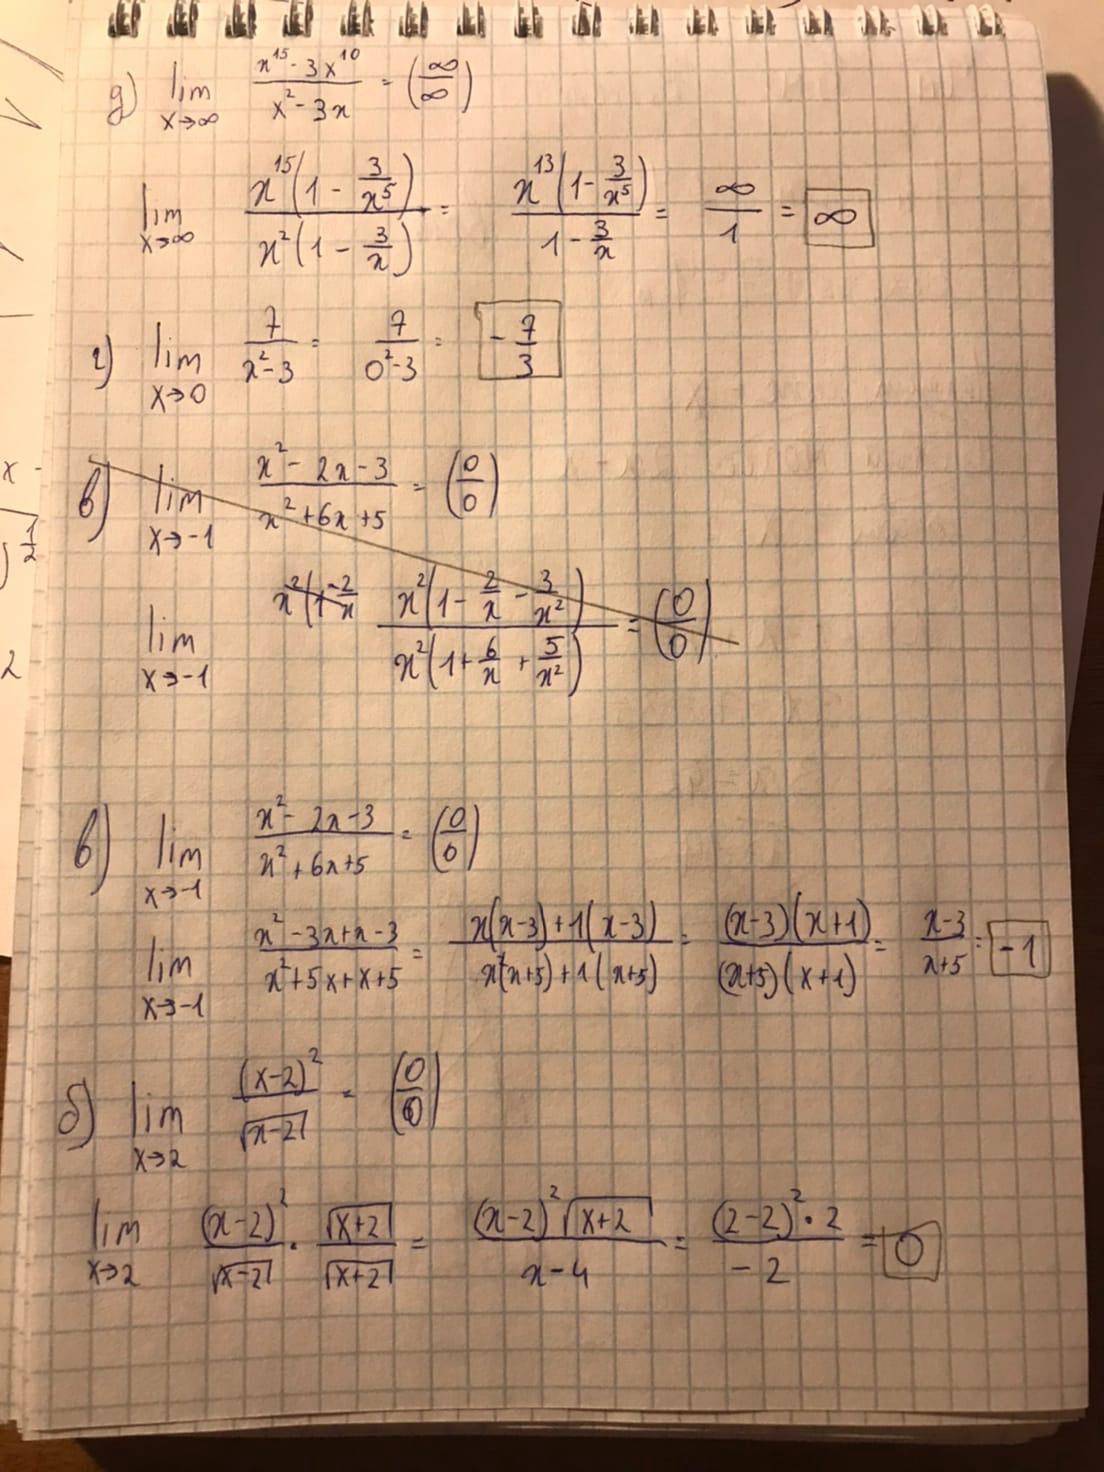 д) lim x→∞ (x¹⁵ - 3x¹⁰)/(x² - 3x) = (∞/∞)
lim x→∞ x¹⁵(1 - 3/x⁵)/x²(1 - 3/x) = x¹³(1 - 3/x⁵)/(1 - 3/x) = ∞/1 = ∞
г) lim x→0 7/(x² - 3) = 7/(0² - 3) = -7/3
в) lim x→-1 (x² - 2x - 3)/(x² + 6x + 5) = (0/0)
lim x→-1 x²(1 - 2/x x²(1 - 2/x - 3/x²)/x²(1 + 6/x + 5/x²) = (0/0)
в) lim x→-1 (x² - 2x - 3)/(x² + 6x + 5) = (0/0)
lim x→-1 (x² - 3x + x - 3)/(x² + 5x + x + 5) = (x(x-3) + 1(x-3))/(x(x+5) + 1(x+5)) = (x-3)(x+1)/(x+5)(x+1) = (x-3)/(x+5) = -1
б) lim x→2 (x-2)²/√(x-2) = (0/0)
lim x→2 (x-2)²/√(x-2) · √(x+2)/√(x+2) = (x-2)²√(x+2)/(x-4) = (2-2)²·2/-2 = 0